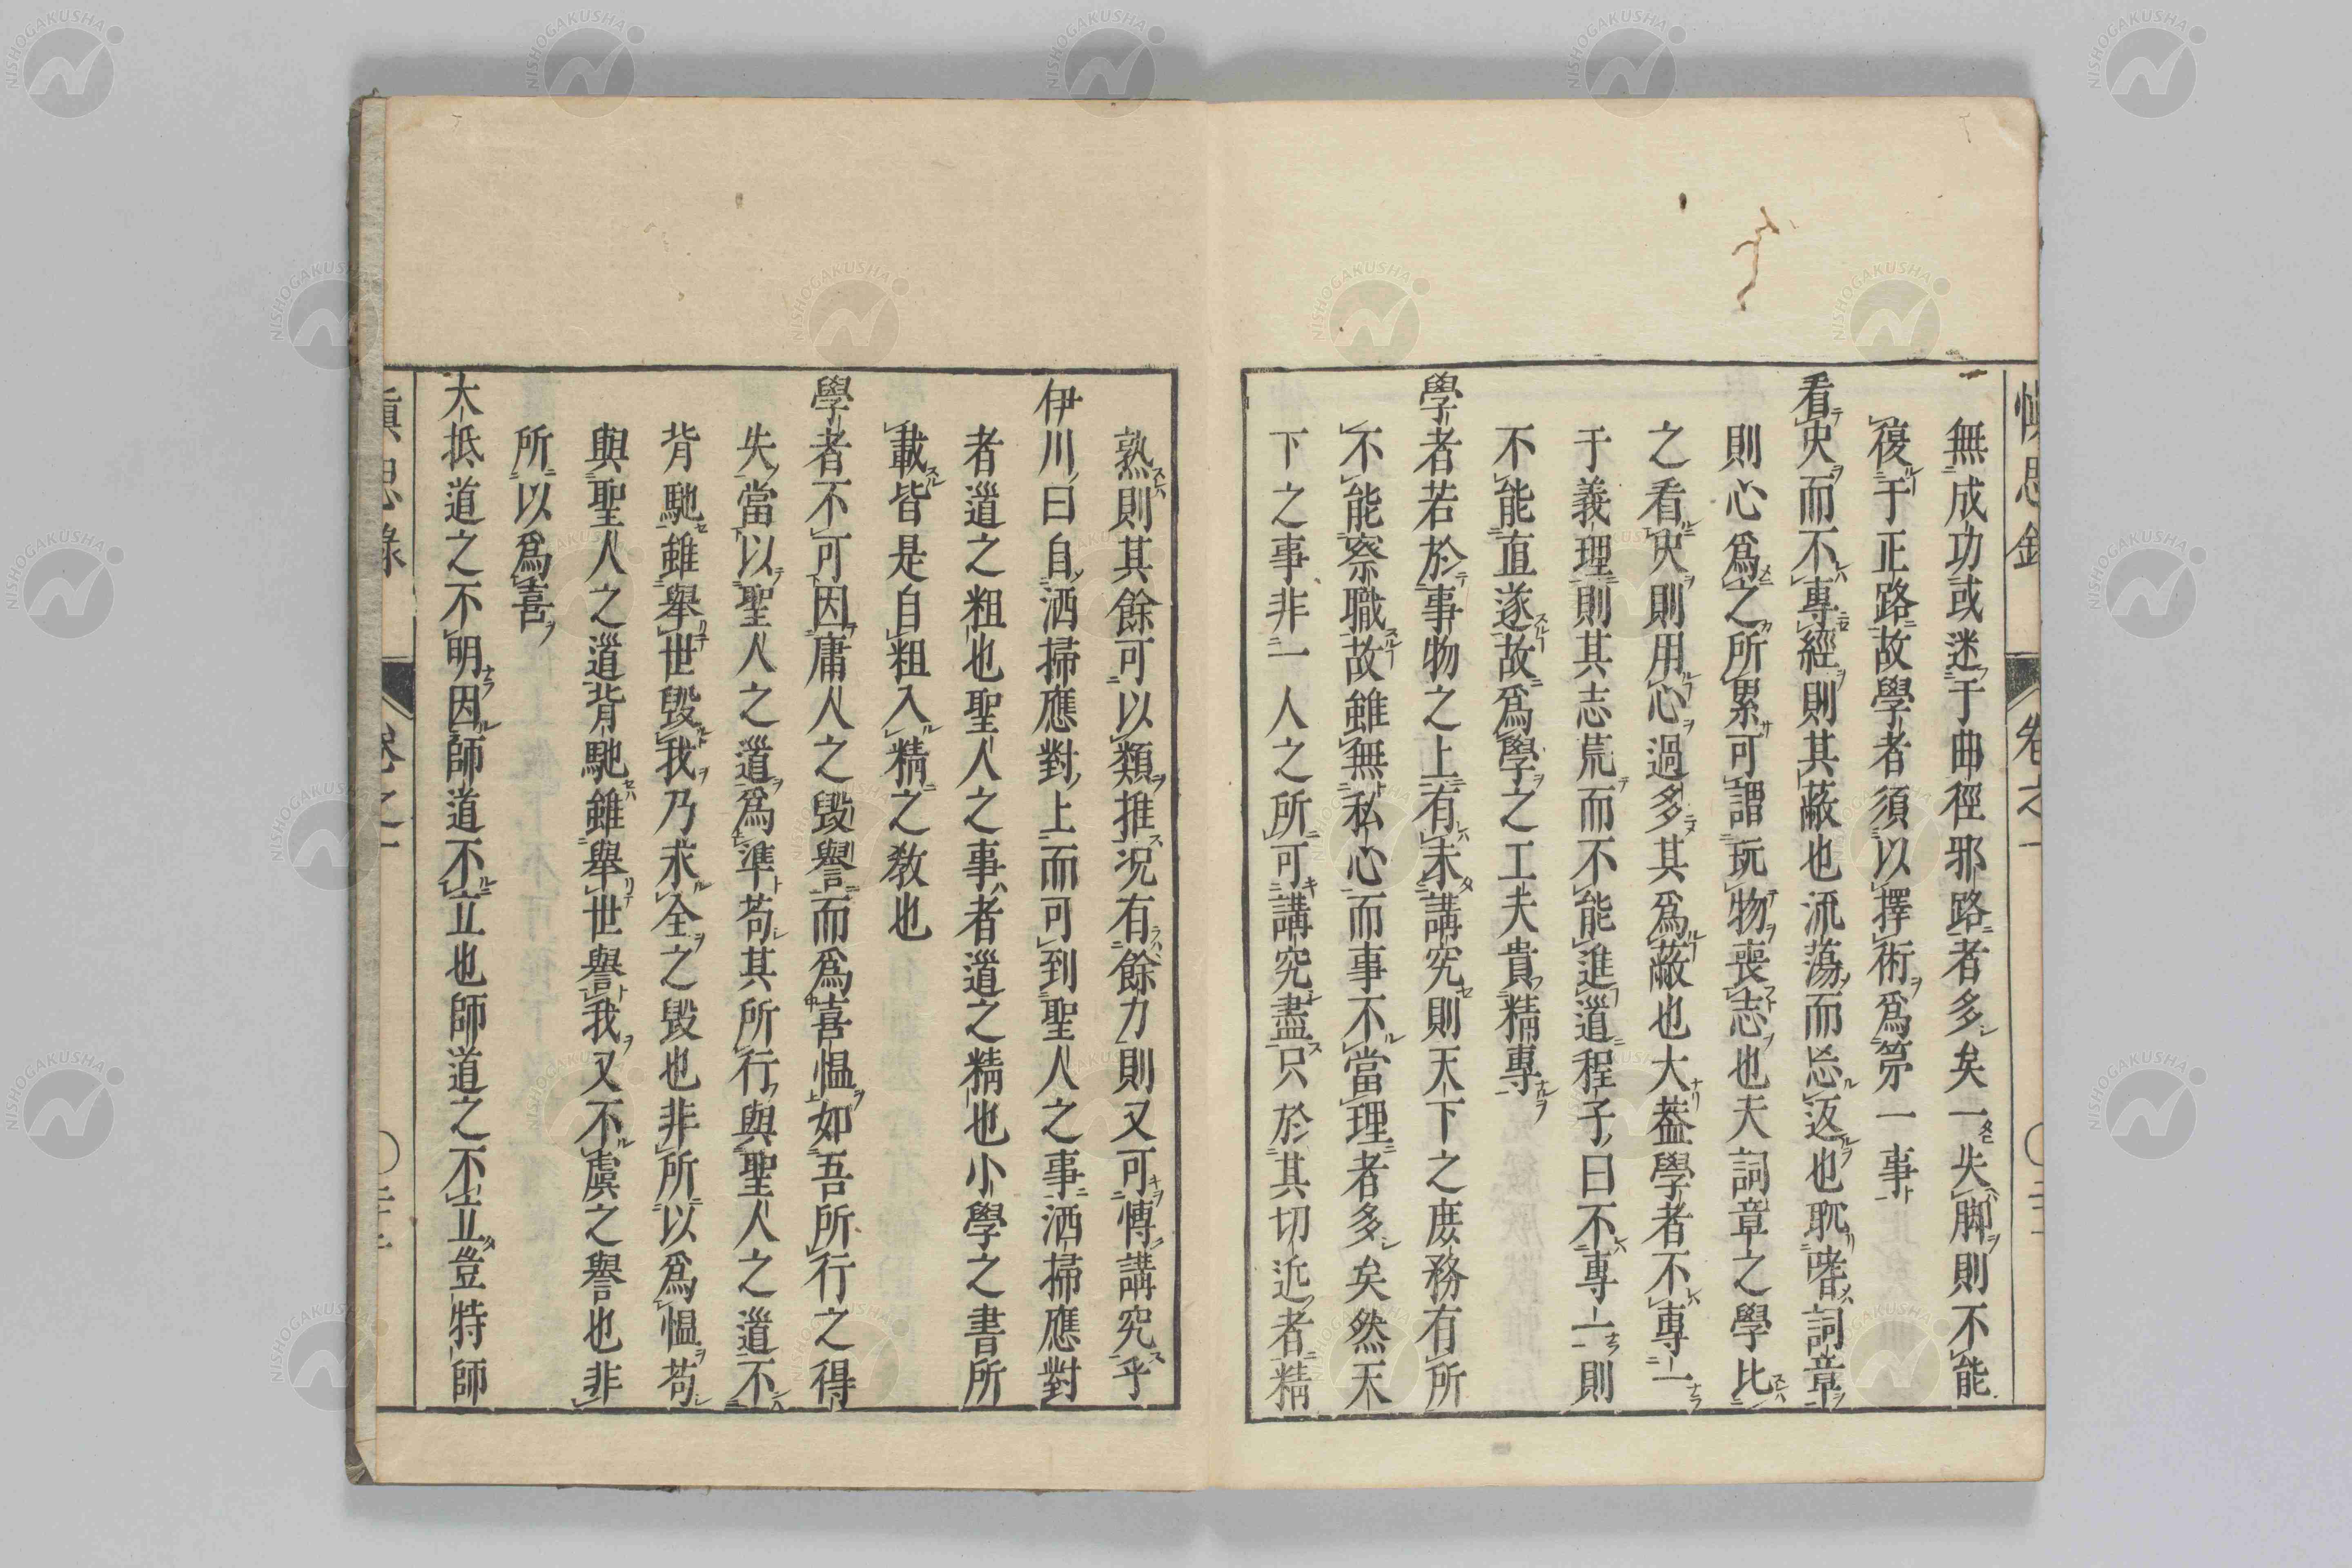 無成功或迷于曲徑邪路者多矣一失脚則不能
復于正路故學者須以擇術爲第一事
看史而不專經則其蔽也流蕩而忘返也耽嗜詞章
則心爲之所累可謂玩物喪志也夫詞章之學比
之看史則用心過多其爲蔽也大蓋學者不專一
于義理則其志荒而不能進道程子曰不專一則
不能直遂故爲學之工夫貴精專
學者若於事物之上有未講究則天下之庶務有所
不能察職故雖無私心而事不當理者多矣然天
下之事非一人之所可講究盡只於其切近者精
熟則其餘可以類推况有餘力則又可博講究乎
伊川曰自洒掃應對上而可到聖人之事洒掃應對
者道之粗也聖人之事者道之精也小學之書所
載皆是自粗入精之敎也
學者不可因庸人之毀譽而爲喜慍如吾所行之得
失當以聖人之道爲準苟其所行與聖人之道不
背馳雖舉世毀我乃求全之毀也非所以爲慍苟
與聖人之道背馳雖舉世譽我又不虞之譽也非
所以爲喜
大抵道之不明因師道不立也師道之不立豈特師
愼思錄
卷之一
NISHOGAKUSHA